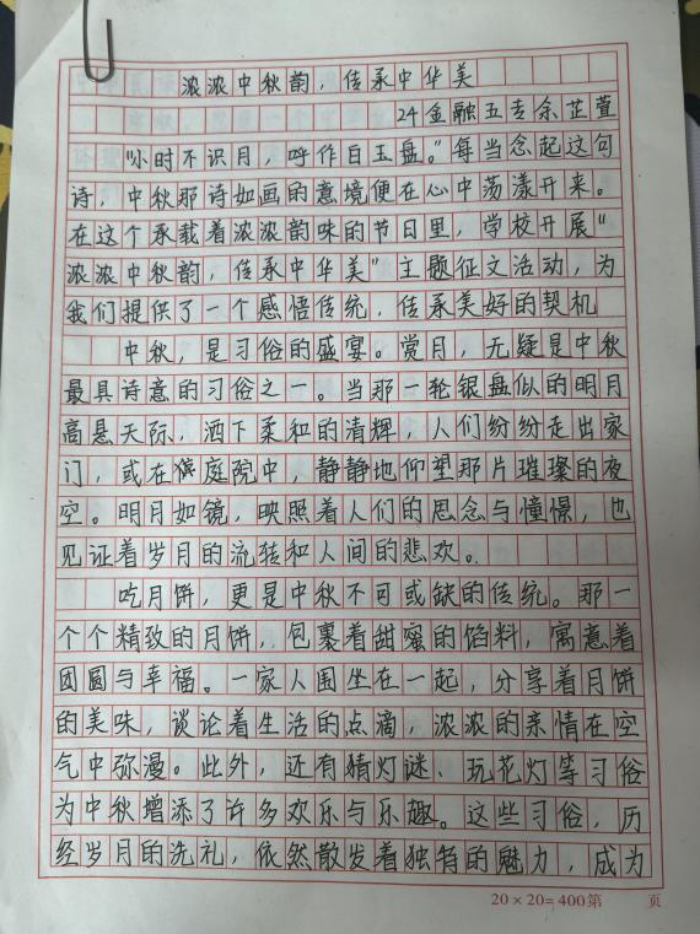 浓浓中秋韵，传承中华美
24金融五专余芷萱
"小时不识月，呼作白玉盘。"每当念起这句
诗，中秋那诗如画的意境便在心中荡漾开来。
在这个承载着浓浓韵味的节日里，学校开展"
浓浓中秋韵，传承中华美"主题征文活动，为
我们提供了一个感悟传统，传承美好的契机
中秋，是习俗的盛宴。赏月，无疑是中秋
最具诗意的习俗之一。当那一轮银盘似的明月
高悬天际，洒下柔和的清辉，人们纷纷走出家
门，或在庭院中，静静地仰望那片璀璨的夜
空。明月如镜，映照着人们的思念与憧憬，也
见证着岁月的流转和人间的悲欢。
吃月饼，更是中秋不可或缺的传统。那一
个个精致的月饼，包裹着甜蜜的馅料，寓意着
团圆与幸福。一家人围坐在一起，分享着月饼
的美味，谈论着生活的点滴，浓浓的亲情在空
气中弥漫。此外，还有猜灯谜、玩花灯等习俗
为中秋增添了许多欢乐与乐趣。这些习俗，历
经岁月的洗礼，依然散发着独特的魅力，成为
20×20=400第 页